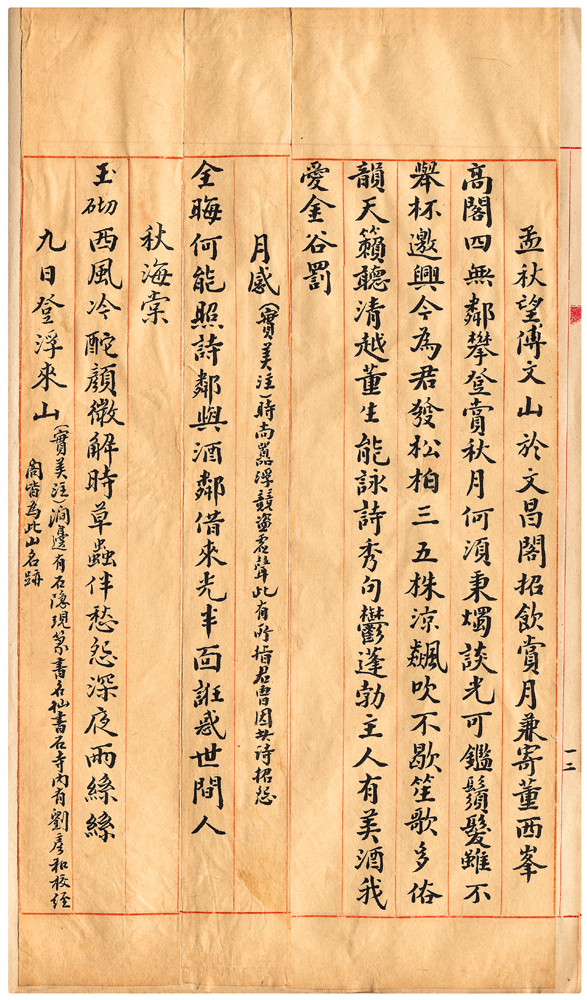 孟秋望傅文山於文昌閣招飲賞月兼寄董西峯
高閣四無鄰攀登賞秋月何須秉燭談光可鑑鬚髮雖不
舉杯邀興今為君發松柏三五株涼飆吹不歇笙歌多俗
韻天籟聽清越董生能詠詩秀句鬱蓬勃主人有美酒我
愛金谷罰
月感(實美注)時尚囂浮競盜虛聲此有所指君曹因其詩招怨
全晦何能照詩鄰與酒鄰借來光半面誑惑世間人
秋海棠
玉砌西風冷酡顏微解時草蟲伴愁怨深夜雨絲絲
九日登浮來山(實美注)澗邊有石隱現篆書名拙書石寺內有劉彥和校經
閣皆為此山名跡
一三